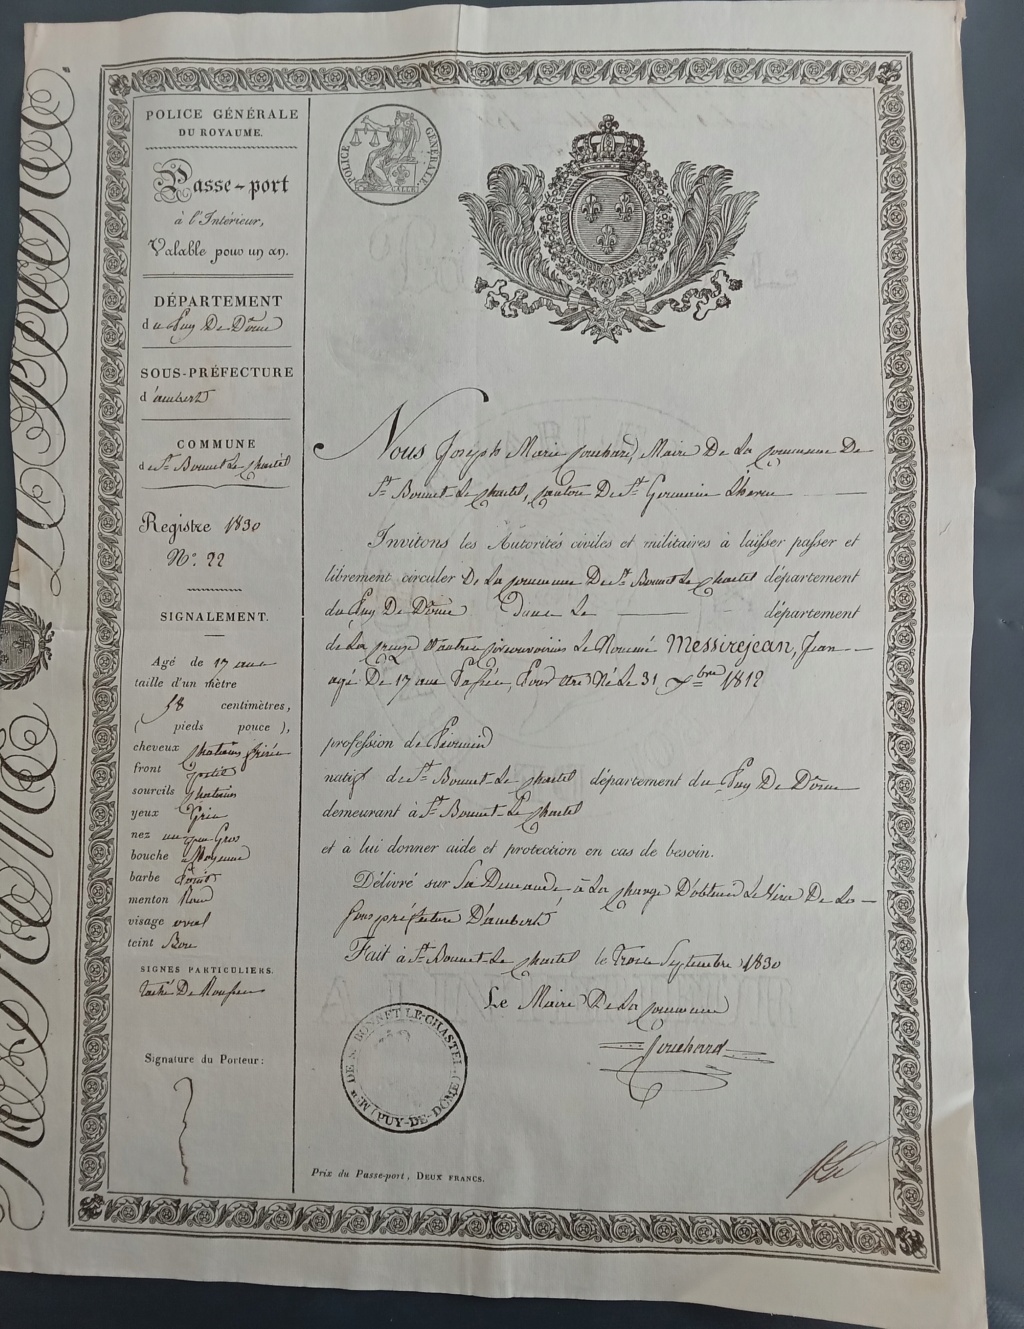 POLICE GÉNÉRALE
DU ROYAUME.
Passe-port
à l'Intérieur,
Valable pour un an.
DÉPARTEMENT
du Puy De Dôme
SOUS-PRÉFECTURE
d'ambert
COMMUNE
de St. Bonnet Le Chastel
Registre 1830
N.° 22
SIGNALEMENT.
Agé de 17 ans
taille d'un mètre
58 centimètres,
( pieds pouce ),
cheveux chatains frisés
front petit
sourcils chatains
yeux Gris
nez un peu Gros
bouche Moyenne
barbe
menton Rond
visage oval
teint Bon
SIGNES PARTICULIERS.
taché De Rousseur
Signature du Porteur:
POLICE GÉNÉRALE
Nous Joseph Marie Pouchard, Maire De La Commune De
St. Bonnet Le Chastel, Canton De St. Germain Lherm
Invitons les Autorités civiles et militaires à laisser passer et
librement circuler De La Commune De St. Bonnet Le Chastel département
du Puy De Dôme Dans Le département
de La Creuse Et autres Le Nommé Messirejean, Jean
agé De 17 ans Passés, Pour être Né Le 31 Xbre 1812
profession de
natif de St. Bonnet Le Chastel département du Puy De Dôme
demeurant à St. Bonnet Le Chastel
et à lui donner aide et protection en cas de besoin.
Délivré sur Sa Demande, à La charge D'obtenir Le Visa De La
Souspréfecture D'ambert
Fait à St. Bonnet Le Chastel le Trois Septembre 1830
Le Maire De La Commune
Pouchard
M.ie DE S. BONNET LE-CHASTEL
(PUY-DE-DÔME)
Prix du Passe-port, DEUX FRANCS.